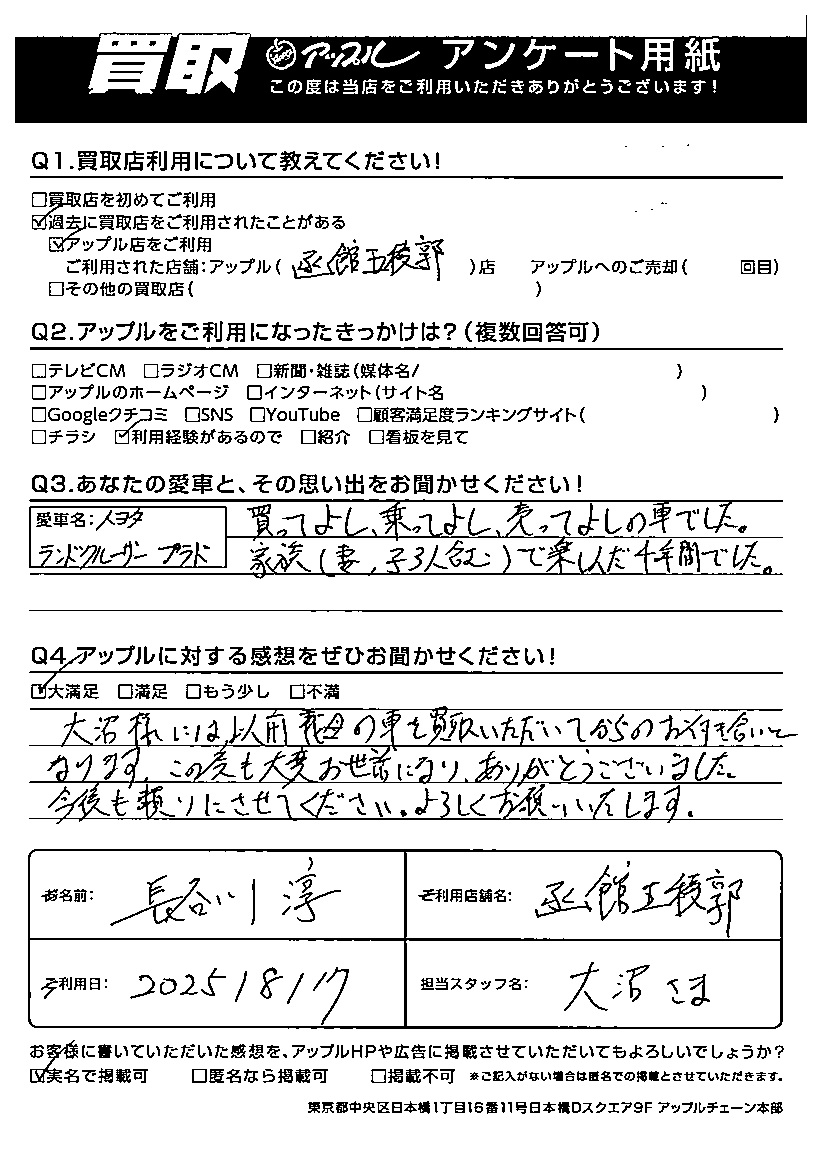 買取 アップル アンケート用紙
この度は当店をご利用いただきありがとうございます!
Q1.買取店利用について教えてください!
□買取店を初めてご利用
☑過去に買取店をご利用されたことがある
☑アップル店をご利用
ご利用された店舗:アップル( 函館五稜郭 )店 アップルへのご売却( 回目)
□その他の買取店( )
Q2.アップルをご利用になったきっかけは?(複数回答可)
□テレビCM □ラジオCM □新聞・雑誌(媒体名/ )
□アップルのホームページ □インターネット(サイト名 )
□Googleクチコミ □SNS □YouTube □顧客満足度ランキングサイト( )
□チラシ ☑利用経験があるので □紹介 □看板を見て
Q3.あなたの愛車と、その思い出をお聞かせください!
愛車名:トヨタ
ランドクルーザー プラド
買ってよし、乗ってよし、売ってよしの車でした。
家族(妻、子3人含む)で楽しんだ4年間でした。
Q4.アップルに対する感想をぜひお聞かせください!
☑大満足 □満足 □もう少し □不満
大沼様には以前義母の車を買取いただいてからのお付き合いと
なります。この度も大変お世話になり、ありがとうございました。
今後も頼りにさせてください。よろしくお願いいたします。
お名前: 長谷川 淳
ご利用店舗名: 函館五稜郭
ご利用日: 2025/8/17
担当スタッフ名: 大沼さま
お客様に書いていただいた感想を、アップルHPや広告に掲載させていただいてもよろしいでしょうか?
☑実名で掲載可 □匿名なら掲載可 □掲載不可 ※ご記入がない場合は匿名での掲載とさせていただきます。
東京都中央区日本橋1丁目16番11号日本橋Dスクエア9F アップルチェーン本部